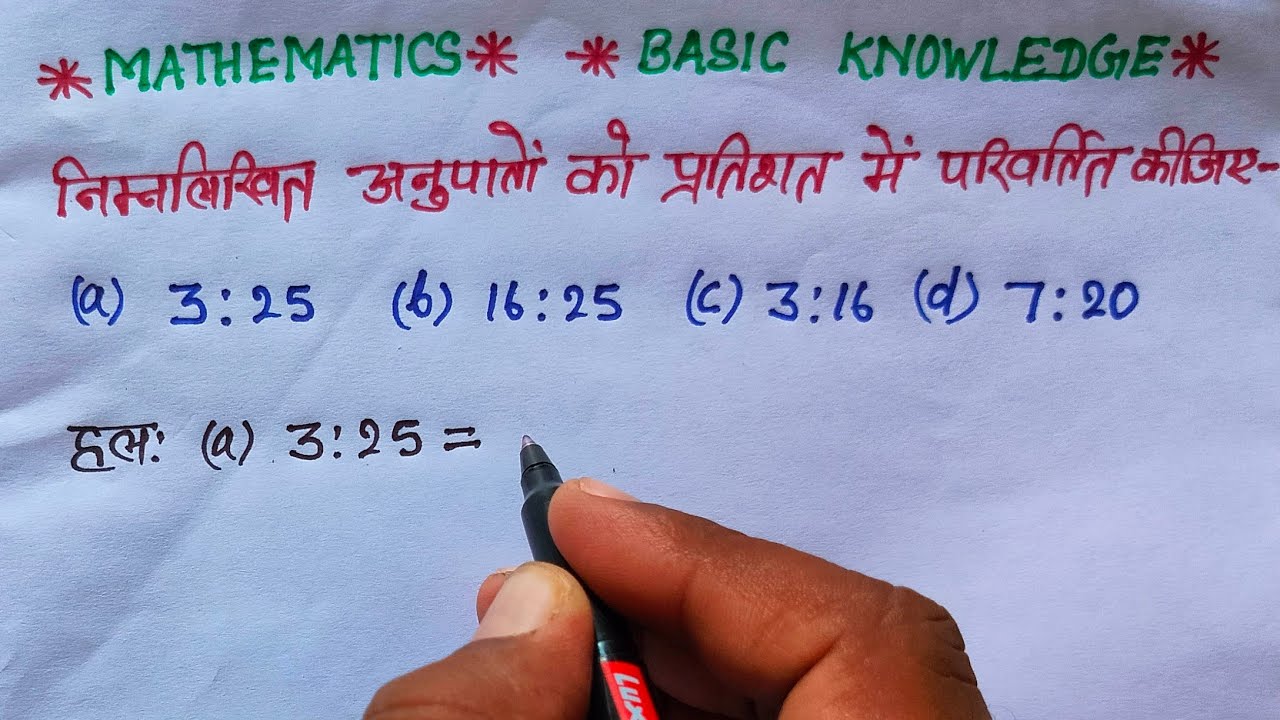 * MATHEMATICS * * BASIC KNOWLEDGE *
निम्नलिखित अनुपातों को प्रतिशत में परिवर्तित कीजिए--
(a) 3:25 (b) 16:25 (c) 3:16 (d) 7:20
हलः (a) 3:25 =
LUX